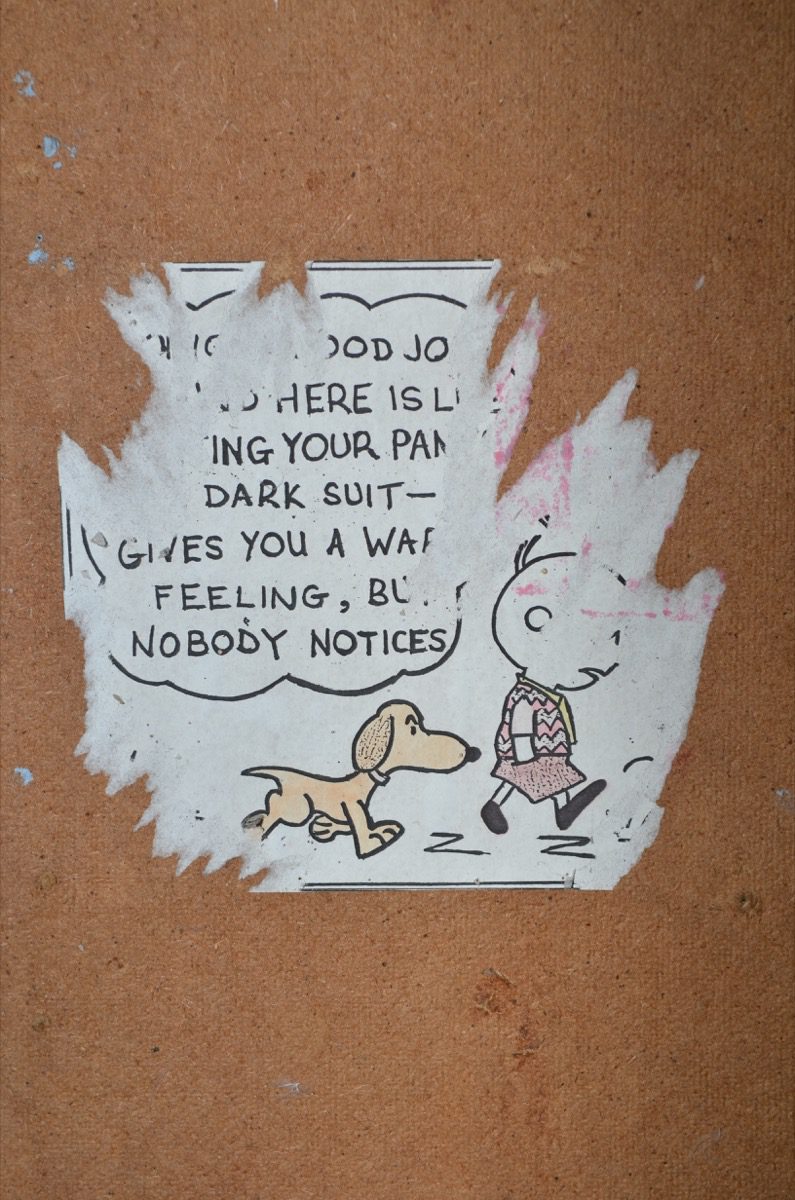 OOD JO
HERE IS L
ING YOUR PAN
DARK SUIT—
GIVES YOU A WAR
FEELING, BU
NOBODY NOTICES